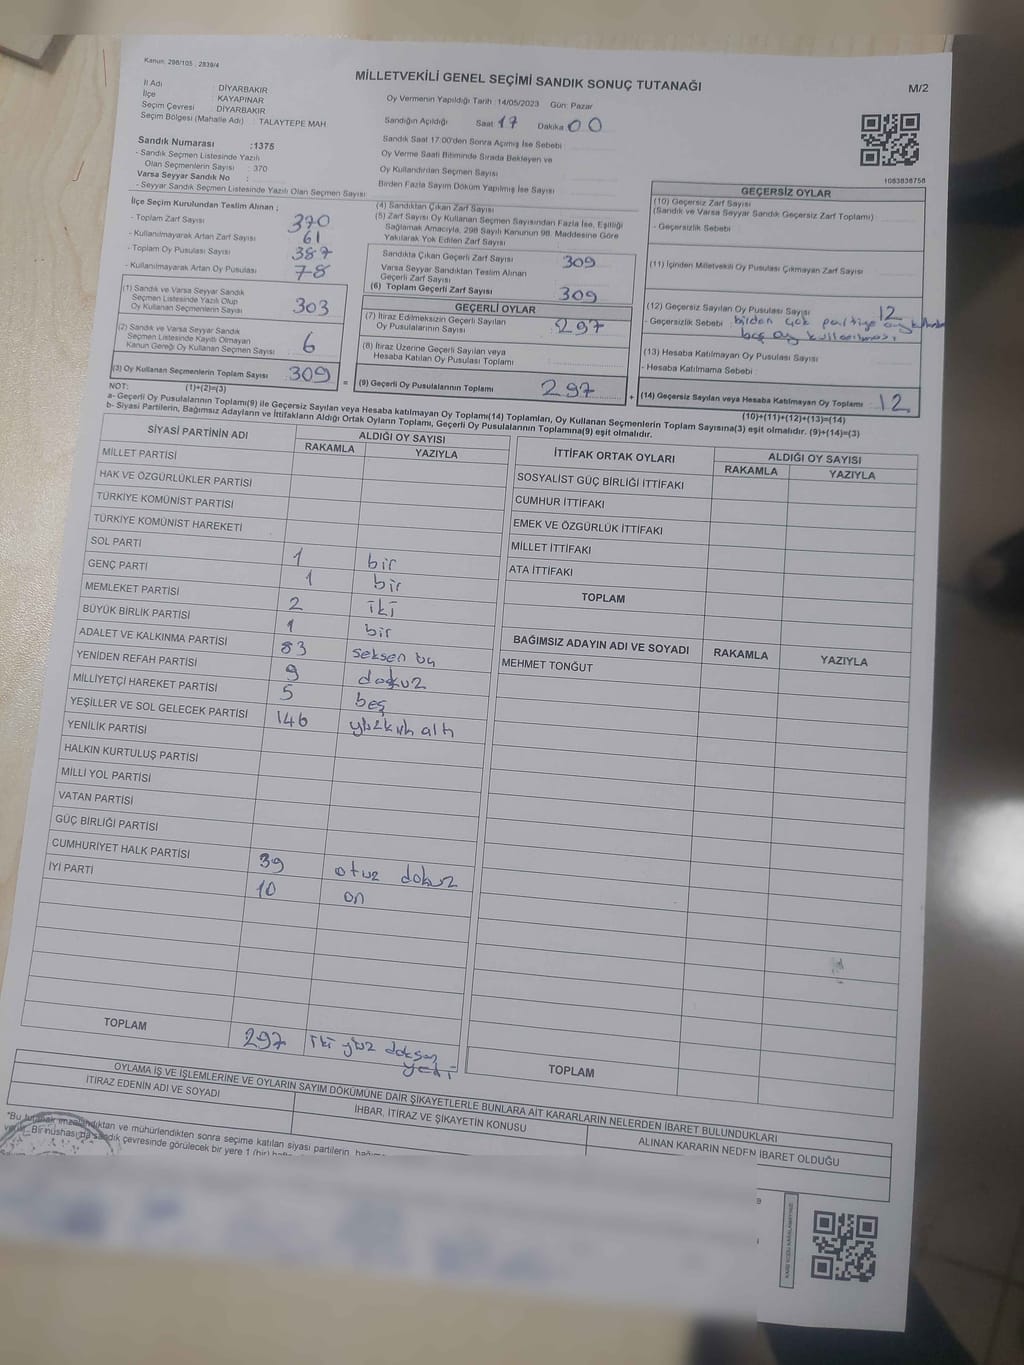 Kanun: 298/105 ; 2839/4
MİLLETVEKİLİ GENEL SEÇİMİ SANDIK SONUÇ TUTANAĞI
M/2
İl Adı : DİYARBAKIR
İlçe : KAYAPINAR
Seçim Çevresi : DİYARBAKIR
Seçim Bölgesi (Mahalle Adı) : TALAYTEPE MAH
Oy Vermenin Yapıldığı Tarih :14/05/2023 Gün: Pazar
Sandığın Açıldığı Saat 17 Dakika 00
Sandık Saat 17:00'den Sonra Açımış İse Sebebi
Oy Verme Saati Bitiminde Sırada Bekleyen ve
Oy Kullandırılan Seçmen Sayısı
Birden Fazla Sayım Döküm Yapılmış İse Sayısı
1083838758
Sandık Numarası :1375
- Sandık Seçmen Listesinde Yazılı
Olan Seçmenlerin Sayısı : 370
Varsa Seyyar Sandık No :
- Seyyar Sandık Seçmen Listesinde Yazılı Olan Seçmen Sayısı
İlçe Seçim Kurulundan Teslim Alınan ;
- Toplam Zarf Sayısı 370
- Kullanılmayarak Artan Zarf Sayısı 61
- Toplam Oy Pusulası Sayısı 387
- Kullanılmayarak Artan Oy Pusulası 78
(1) Sandık ve Varsa Seyyar Sandık
Seçmen Listesinde Yazılı Olup
Oy Kullanan Seçmenlerin Sayısı 303
(2) Sandık ve Varsa Seyyar Sandık
Seçmen Listesinde Kayıtlı Olmayan
Kanun Gereği Oy Kullanan Seçmen Sayısı 6
(3) Oy Kullanan Seçmenlerin Toplam Sayısı 309
(1)+(2)=(3)
(4) Sandıktan Çıkan Zarf Sayısı
(5) Zarf Sayısı Oy Kullanan Seçmen Sayısından Fazla İse, Eşitliği
Sağlamak Amacıyla, 298 Sayılı Kanunun 98. Maddesine Göre
Yakılarak Yok Edilen Zarf Sayısı
Sandıkta Çıkan Geçerli Zarf Sayısı 309
Varsa Seyyar Sandıktan Teslim Alınan
Geçerli Zarf Sayısı
(6) Toplam Geçerli Zarf Sayısı 309
GEÇERLİ OYLAR
(7) İtiraz Edilmeksizin Geçerli Sayılan
Oy Pusulalarının Sayısı 297
(8) İtiraz Üzerine Geçerli Sayılan veya
Hesaba Katılan Oy Pusulası Toplamı
= (9) Geçerli Oy Pusulalarının Toplamı 297 +
GEÇERSİZ OYLAR
(10) Geçersiz Zarf Sayısı
(Sandık ve Varsa Seyyar Sandık Geçersiz Zarf Toplamı)
- Geçersizlik Sebebi
(11) İçinden Milletvekili Oy Pusulası Çıkmayan Zarf Sayısı
(12) Geçersiz Sayılan Oy Pusulası Sayısı 12
- Geçersizlik Sebebi birden çok partiye oy
boş oy kullanılması
(13) Hesaba Katılmayan Oy Pusulası Sayısı
- Hesaba Katılmama Sebebi
(14) Geçersiz Sayılan veya Hesaba Katılmayan Oy Toplamı 12
(10)+(11)+(12)+(13)=(14)
NOT:
a- Geçerli Oy Pusulalarının Toplamı(9) ile Geçersiz Sayılan veya Hesaba katılmayan Oy Toplamı(14) Toplamları, Oy Kullanan Seçmenlerin Toplam Sayısına(3) eşit olmalıdır. (9)+(14)=(3)
b- Siyasi Partilerin, Bağımsız Adayların ve İttifakların Aldığı Ortak Oyların Toplamı, Geçerli Oy Pusulalarının Toplamına(9) eşit olmalıdır.
SİYASİ PARTİNİN ADI ALDIĞI OY SAYISI
RAKAMLA YAZIYLA
MİLLET PARTİSİ
HAK VE ÖZGÜRLÜKLER PARTİSİ
TÜRKİYE KOMÜNİST PARTİSİ
TÜRKİYE KOMÜNİST HAREKETİ
SOL PARTİ 1 bir
GENÇ PARTİ 1 bir
MEMLEKET PARTİSİ 2 iki
BÜYÜK BİRLİK PARTİSİ 1 bir
ADALET VE KALKINMA PARTİSİ 83 seksen üç
YENİDEN REFAH PARTİSİ 9 dokuz
MİLLİYETÇİ HAREKET PARTİSİ 5 beş
YEŞİLLER VE SOL GELECEK PARTİSİ 146 yüzkırk altı
YENİLİK PARTİSİ
HALKIN KURTULUŞ PARTİSİ
MİLLİ YOL PARTİSİ
VATAN PARTİSİ
GÜÇ BİRLİĞİ PARTİSİ
CUMHURİYET HALK PARTİSİ 39 otuz dokuz
İYİ PARTİ 10 on
TOPLAM 297 iki yüz doksan
yedi
İTTİFAK ORTAK OYLARI ALDIĞI OY SAYISI
RAKAMLA YAZIYLA
SOSYALİST GÜÇ BİRLİĞİ İTTİFAKI
CUMHUR İTTİFAKI
EMEK VE ÖZGÜRLÜK İTTİFAKI
MİLLET İTTİFAKI
ATA İTTİFAKI
TOPLAM
BAĞIMSIZ ADAYIN ADI VE SOYADI RAKAMLA YAZIYLA
MEHMET TONĞUT
TOPLAM
OYLAMA İŞ VE İŞLEMLERİNE VE OYLARIN SAYIM DÖKÜMÜNE DAİR ŞİKAYETLERLE BUNLARA AİT KARARLARIN NELERDEN İBARET BULUNDUKLARI
İTİRAZ EDENİN ADI VE SOYADI İHBAR, İTİRAZ VE ŞİKAYETİN KONUSU ALINAN KARARIN NEDEN İBARET OLDUĞU
"Bu tutanak imzalandıktan ve mühürlendikten sonra seçime katılan siyasi partilerin,
Bir nüshası da sandık çevresinde görülecek bir yere 1 (bir)